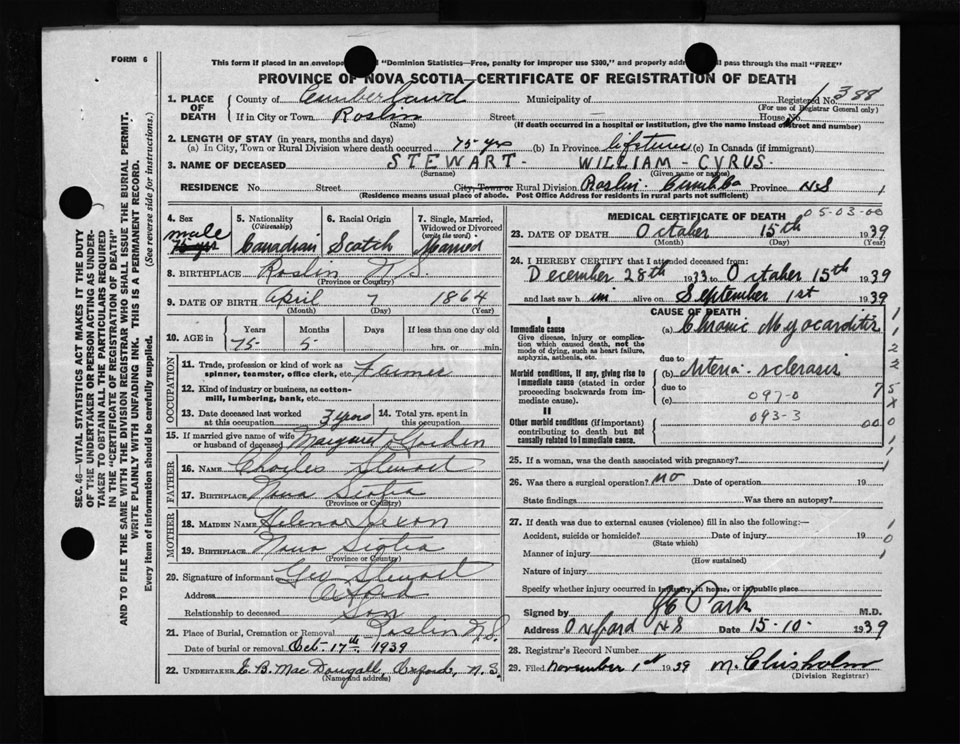 FORM 6
This form if placed in an envelope "Dominion Statistics—Free, penalty for improper use $300," and properly addr ll pass through the mail "FREE"
PROVINCE OF NOVA SCOTIA—CERTIFICATE OF REGISTRATION OF DEATH
1. PLACE OF DEATH County of Cumberland Municipality of Registered No. 388
(For use of Registrar General only)
If in City or Town Roslin Street House No.
(Name) (If death occurred in a hospital or institution, give the name instead of street and number)
2. LENGTH OF STAY (in years, months and days)
(a) In City, Town or Rural Division where death occurred 75 yrs (b) In Province lifetime (c) In Canada (if immigrant)
3. NAME OF DECEASED STEWART - WILLIAM - CYRUS.
(Surname) (Given name or names)
RESIDENCE No. Street City, Town or Rural Division Roslin Province N.S 1
(Residence means usual place of abode. Post Office Address for residents in rural parts not sufficient)
4. Sex male
5. Nationality (Citizenship) Canadian
6. Racial Origin Scotch
7. Single, Married, Widowed or Divorced (write the word) Married
8. BIRTHPLACE Roslin N.S.
(Province or Country)
9. DATE OF BIRTH April 7 1864
(Month) (Day) (Year)
10. AGE in Years Months Days If less than one day old
75 5 hrs. or min.
OCCUPATION
11. Trade, profession or kind of work as spinner, teamster, office clerk, etc. Farmer
12. Kind of industry or business, as cotton-mill, lumbering, bank, etc.
13. Date deceased last worked at this occupation 3 years 14. Total yrs. spent in this occupation
15. If married give name of wife or husband of deceased Margaret
FATHER
16. NAME Charles Stewart
17. BIRTHPLACE Nova Scotia
MOTHER
18. MAIDEN NAME
19. BIRTHPLACE Nova Scotia
(Province or Country)
20. Signature of informant Guy Stewart
Address Oxford
Relationship to deceased Son
21. Place of Burial, Cremation or Removal Roslin N.S.
Date of burial or removal Oct. 17th 1939
22. UNDERTAKER E. B. MacDougall, Oxford, N.S.
(Name and address)
MEDICAL CERTIFICATE OF DEATH 05-03-00
23. DATE OF DEATH October 15th 1939
(Month) (Day) (Year)
24. I HEREBY CERTIFY that I attended deceased from:
December 28th 1933 to October 15th 1939
and last saw h im alive on September 1st 1939
CAUSE OF DEATH
I
Immediate cause (a) Chronic Myocarditis
Give disease, injury or complication which caused death, not the mode of dying, such as heart failure, asphyxia, asthenia, etc.
due to
Morbid conditions, if any, giving rise to Immediate cause (stated in order proceeding backwards from immediate cause). (b) Arterio-sclerosis
due to
(c) 097-0
II 093-3
Other morbid conditions (if important) contributing to death but not causally related to Immediate cause. 00
25. If a woman, was the death associated with pregnancy?
26. Was there a surgical operation? no Date of operation 19
State findings Was there an autopsy?
27. If death was due to external causes (violence) fill in also the following:—
Accident, suicide or homicide? Date of injury 19
(State which)
Manner of injury
(How sustained)
Nature of injury
Specify whether injury occurred in industry, in home, or in public place
Signed by Park M.D.
Address Oxford N S Date 15-10- 1939
28. Registrar's Record Number
29. Filed November 1st 1939 M. Chisholm
(Division Registrar)
SEC. 46—VITAL STATISTICS ACT MAKES IT THE DUTY
OF THE UNDERTAKER OR PERSON ACTING AS UNDER-
TAKER TO OBTAIN ALL THE PARTICULARS REQUIRED
IN THE "CERTIFICATE OF REGISTRATION OF DEATH"
AND TO FILE THE SAME WITH THE DIVISION REGISTRAR WHO SHALL ISSUE THE BURIAL PERMIT.
WRITE PLAINLY WITH UNFADING INK. THIS IS A PERMANENT RECORD.
Every item of information should be carefully supplied. (See reverse side for instructions.)